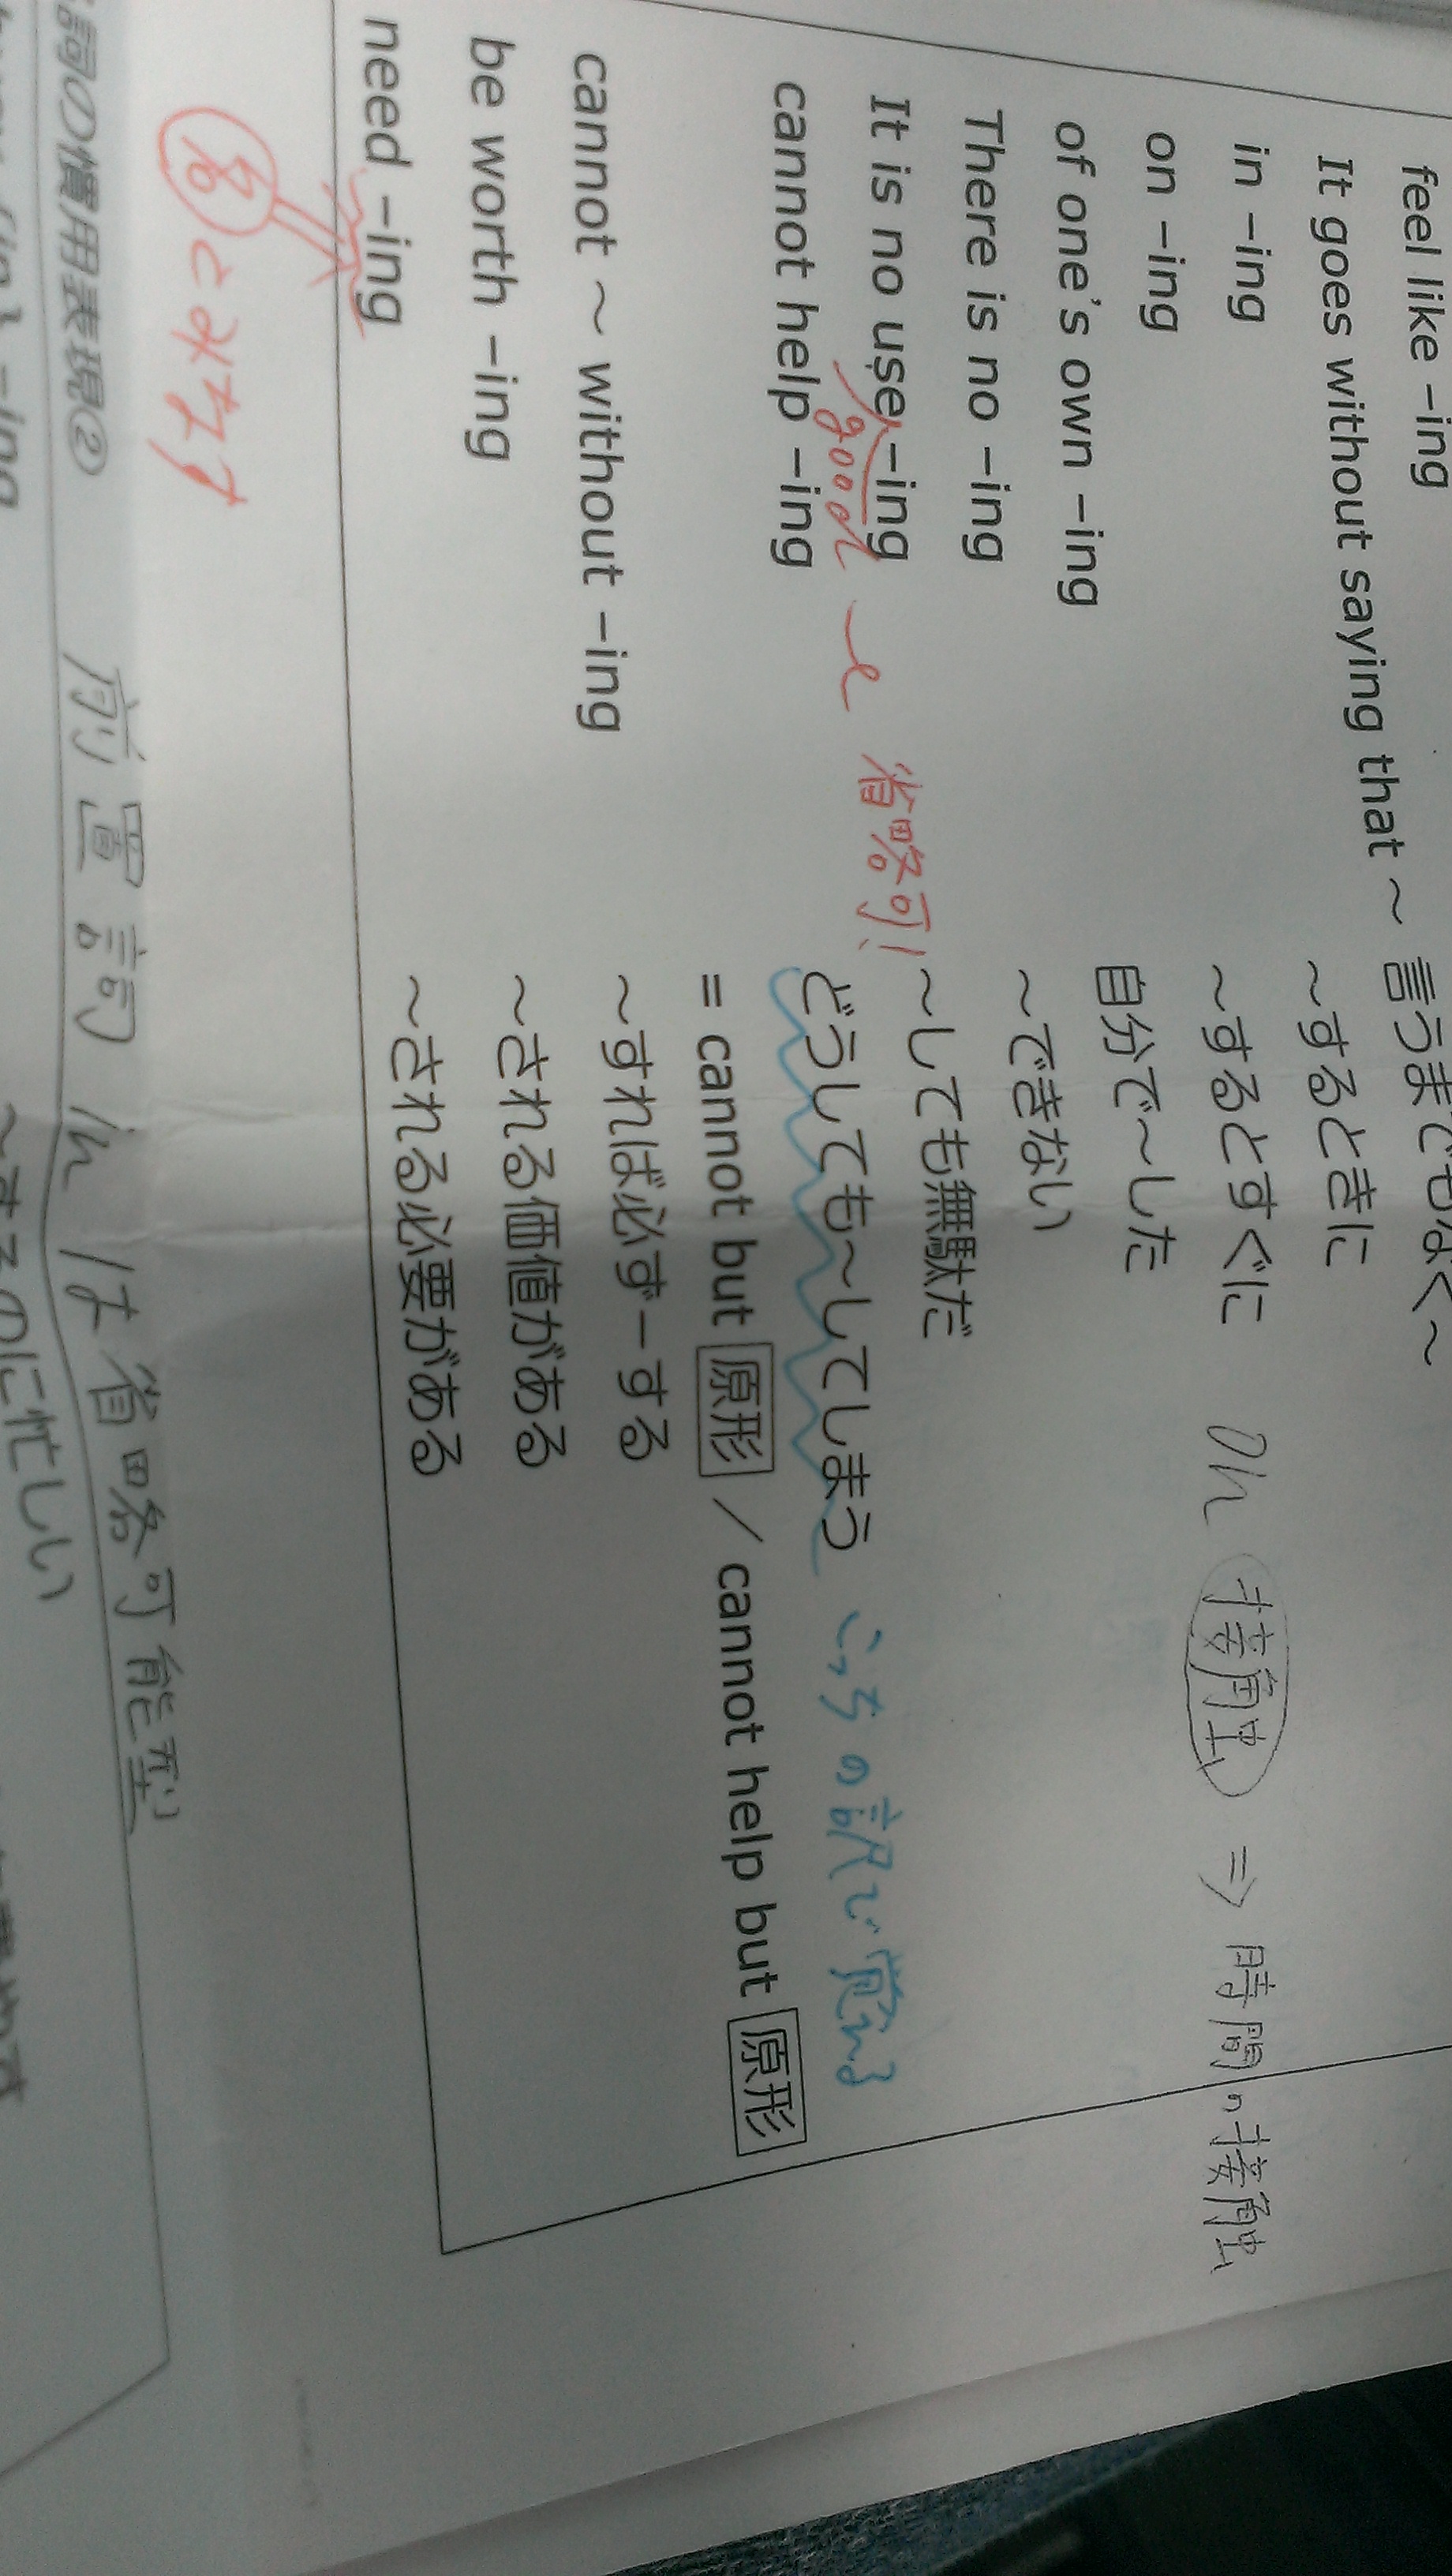 feel like –ing
It goes without saying that ～ 言うまでもなく～
in –ing ～するときに
on –ing ～するとすぐに on 接触 ⇒ 時間の接触
of one's own –ing 自分で～した
There is no –ing ～できない
It is no use –ing ～しても無駄だ
good ～ 省略可!
cannot help –ing どうしても～してしまう こっちの訳で覚える
= cannot but 原形 / cannot help but 原形
cannot ～ without –ing ～すれば必ず－する
be worth –ing ～される価値がある
need –ing ～される必要がある
名 とみなす
詞の慣用表現② 前置詞 in は省略可能型
–ing ～するのに忙しい